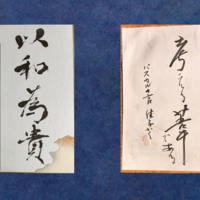 以和為貴
考える葦である
パスカルの言